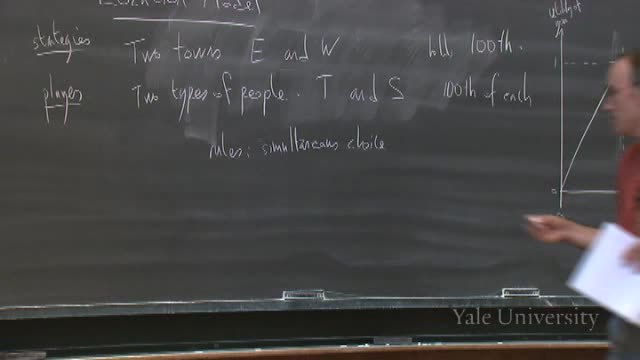 Location Model
strategies Two towns E and W hold 100th.
players Two types of people. T and S 100th of each
rules: simultaneous choice
utility of
1
0
Yale University